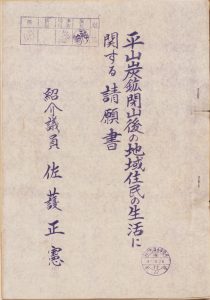 平山炭鉱閉山後の地域住民の生活に
関する請願書
紹介議員 佐護正憲